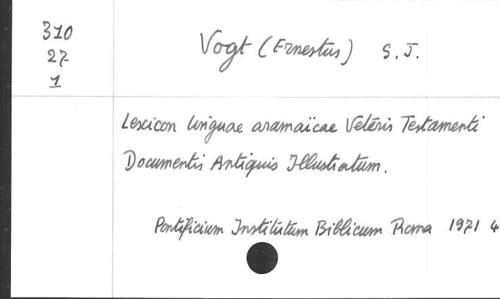 310
27
1
Vogt (Ernestus) S. J.
Lexicon linguae aramaïcae Veteris Testamenti
Documentis Antiquis Illustratum.
Pontificium Institutum Biblicum Roma 1971 4